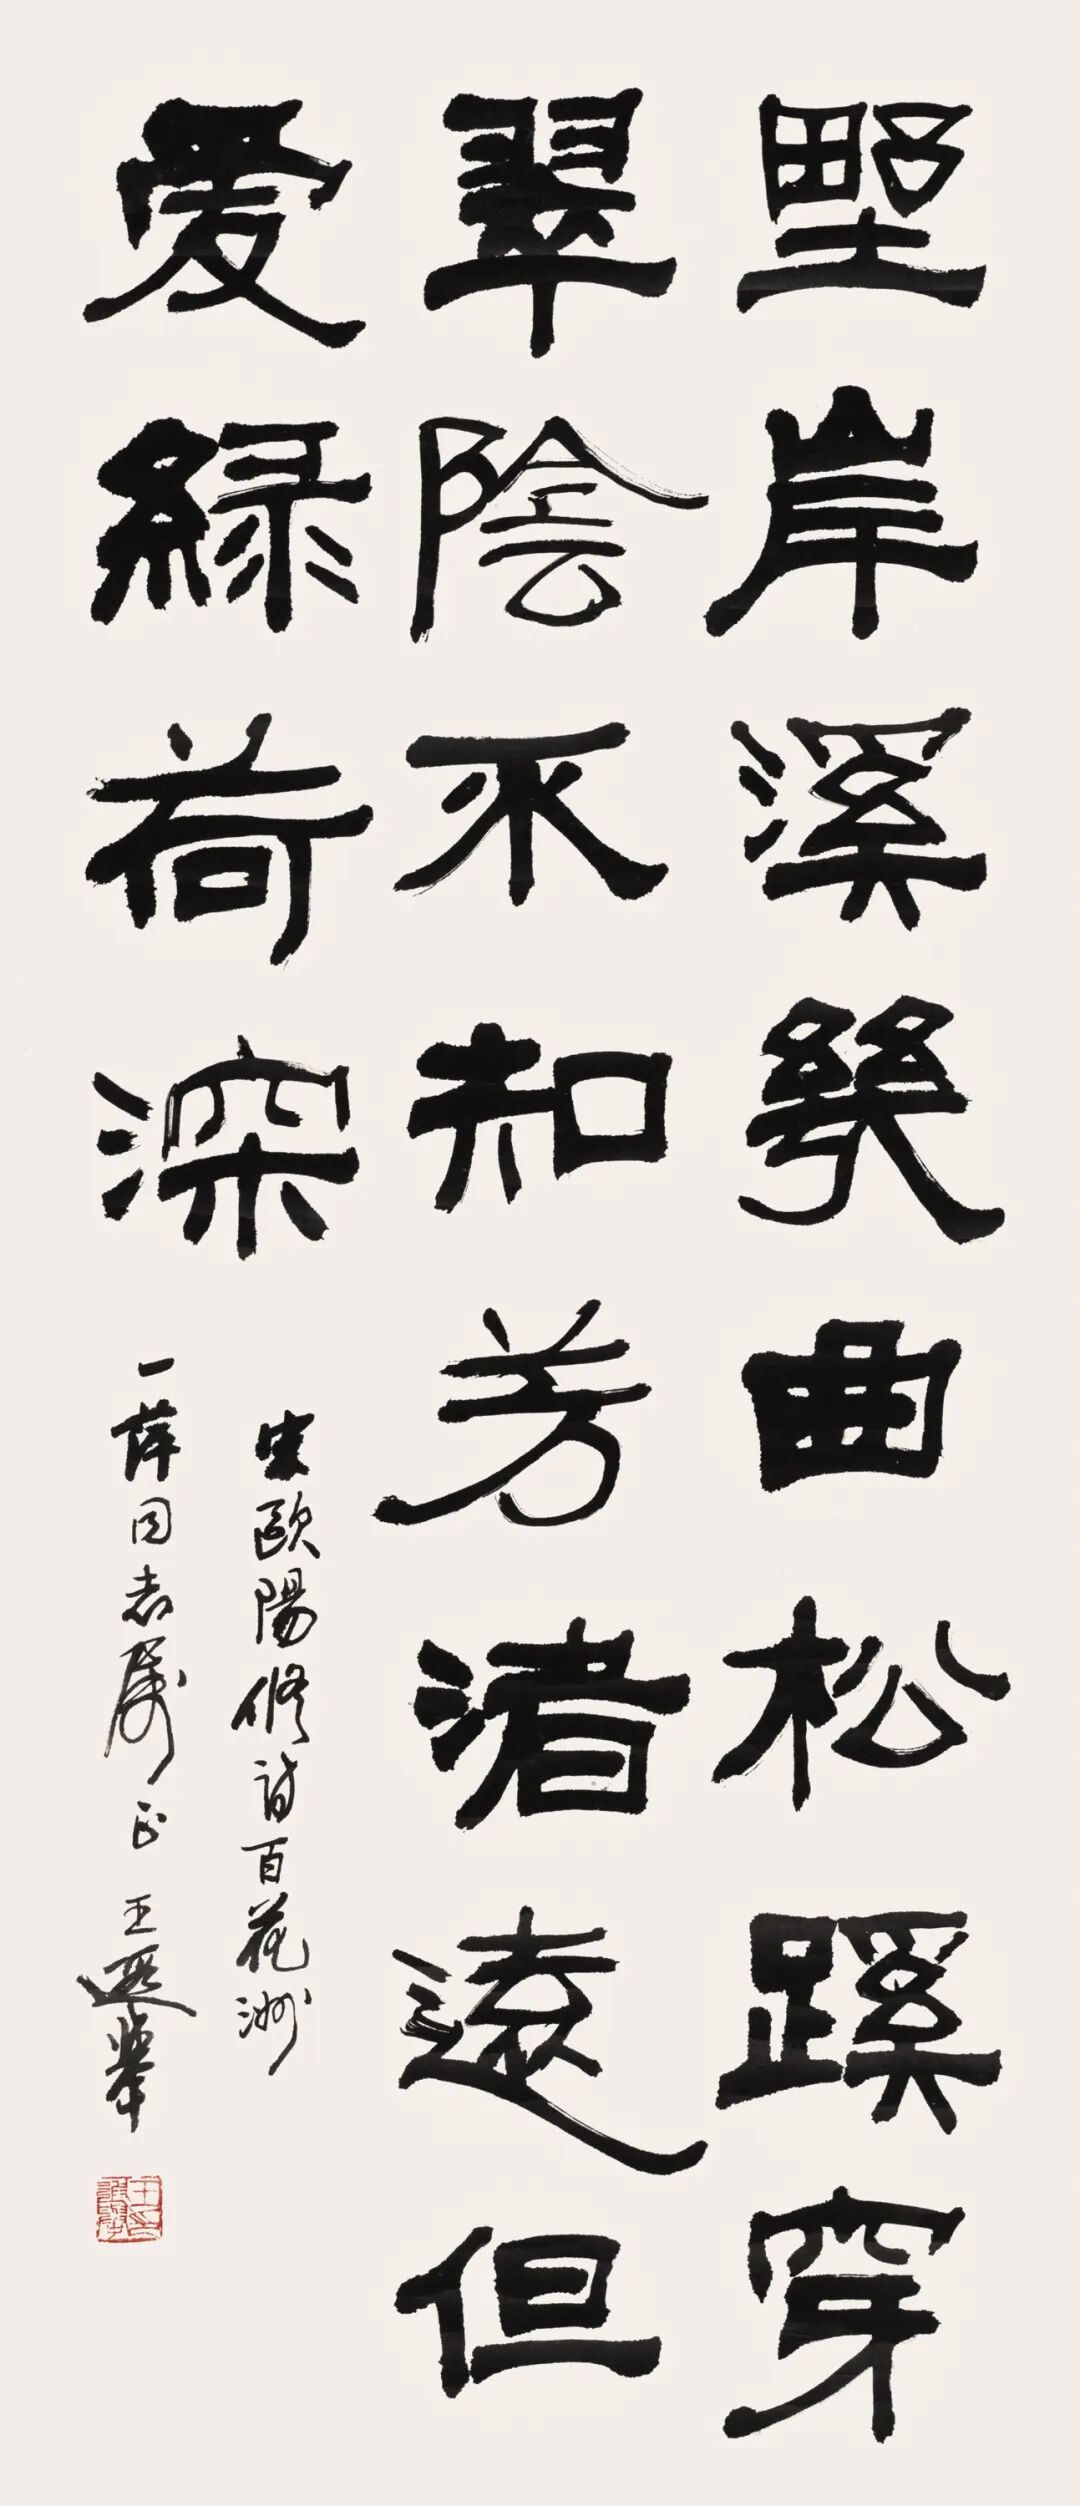 野岸溪幾曲松蹊穿
翠陰不知芳渚遠但
愛綠荷深
宋歐陽修詩百花洲
一萍同志屬正 王遐舉